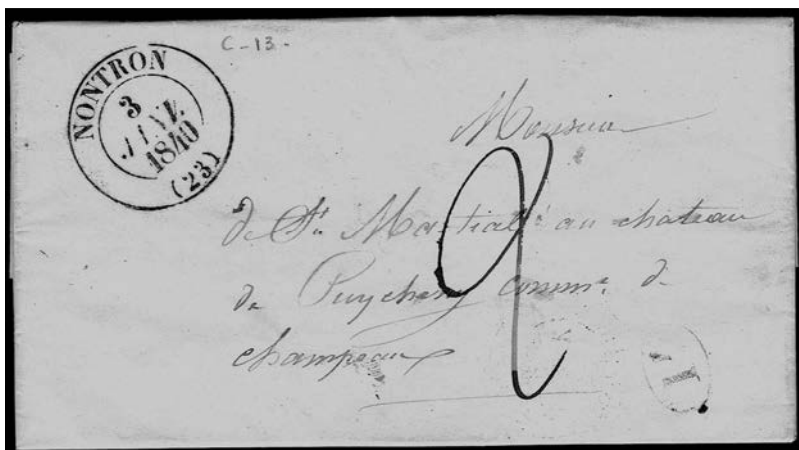 C-13-
NONTRON
3
JANV.
1840
(23)
Monsieur
de St. Martial au chateau
de Puycheny comm.e de
champeaux
2